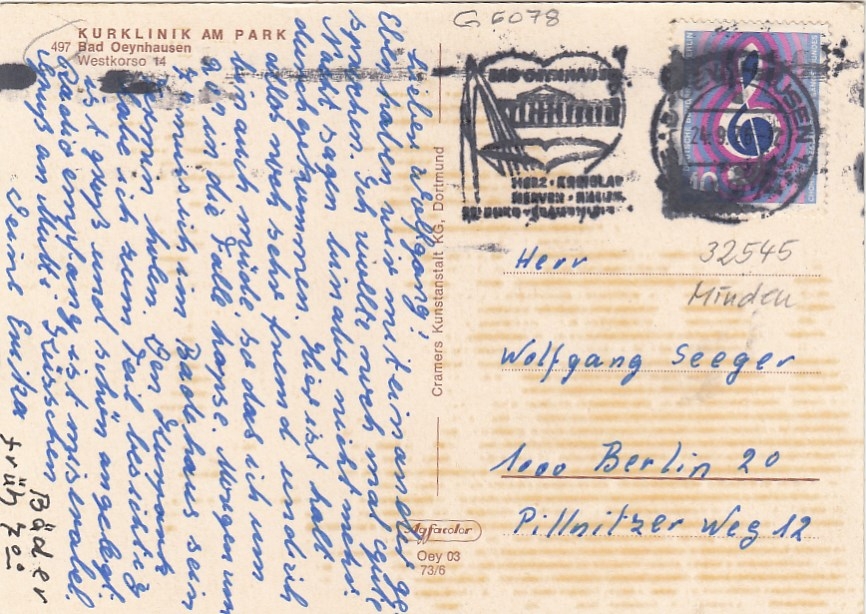 KURKLINIK AM PARK
497 Bad Oeynhausen
Westkorso 14
G 6078
Lieber Wolfgang!
Eben haben wir miteinander ge-
sprochen. Ich wollte noch mal gute
Nacht sagen, bin aber nicht mehr
durchgekommen. Hier ist halt
alles noch sehr fremd und ich
bin auch müde, so das ich um
9 Uhr in die Falle hopse. Morgen um
7 muss ich im Badehaus sein
Termin holen. Den Kurpark
habe ich zum Teil besichtigt
ist groß und schön angelegt.
Radio empfang ist miserabel.
Gruß an Mutti Küsschen
Deine Erika
Bäder
früh 7 00
Cramers Kunstanstalt KG, Dortmund
Agfacolor
Oey 03
73/6
BAD OEYNHAUSEN
HERZ · KREISLAUF
NERVEN · RHEUMA
24.9.
Herr
32545
Minden
Wolfgang Seeger
1000 Berlin 20
Pillnitzer Weg 12